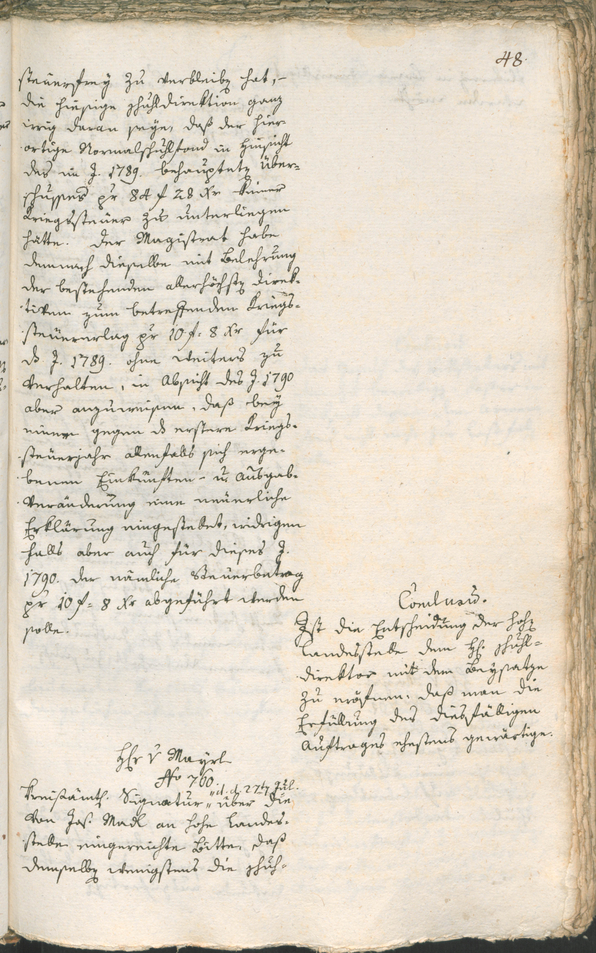 48.
steuerfrey zu verbleibē hat, –
die hiesige Schuldirektion ganz
irrig daran seye, daß der hier-
ortige Normalschulfond in Hinsicht
des im J. 1789. behauptetē Über-
schusses pr 84 f 28 xr keiner
Kriegssteuer zu unterliegen
hätte. Der Magistrat habe
demnach dieselbe mit Belehrung
der bestehenden allerhöchstē Direk-
tiven zum betreffenden Kriegs-
steuererlag pr 10 f. 8 xr für
d J. 1789. ohne weiters zu
verhalten, in Absicht des J. 1790
aber anzuweisen, daß bey
einer gegen d erstere Kriegs-
steuerjahr allenfalls sich erge-
benen Einkünften- u Ausgab-
veränderung eine neuerliche
Erklärung eingestaltet, widrigen
falls aber auch für dieses J.
1790. der nämliche Steuerbetrag
pr 10 f. 8 xr abgeführt werden
solle.
Conclusū.
Ist die Entscheidung der hohē
Landesstelle dem Hh. Schul-
direktor mit dem Beysatze
zu eröfnen: daß man die
Erfüllung des diesfälligen
Auftrages ehestens gewärtige.
Hhr v Mayrl
No 760
Kreisämtl. Signatur „ d. d. 27t Jul. über die
von Jos. Madl an hohe Landes-
stelle eingereichte Bitte, daß
demselbē wenigstens die Schuh-